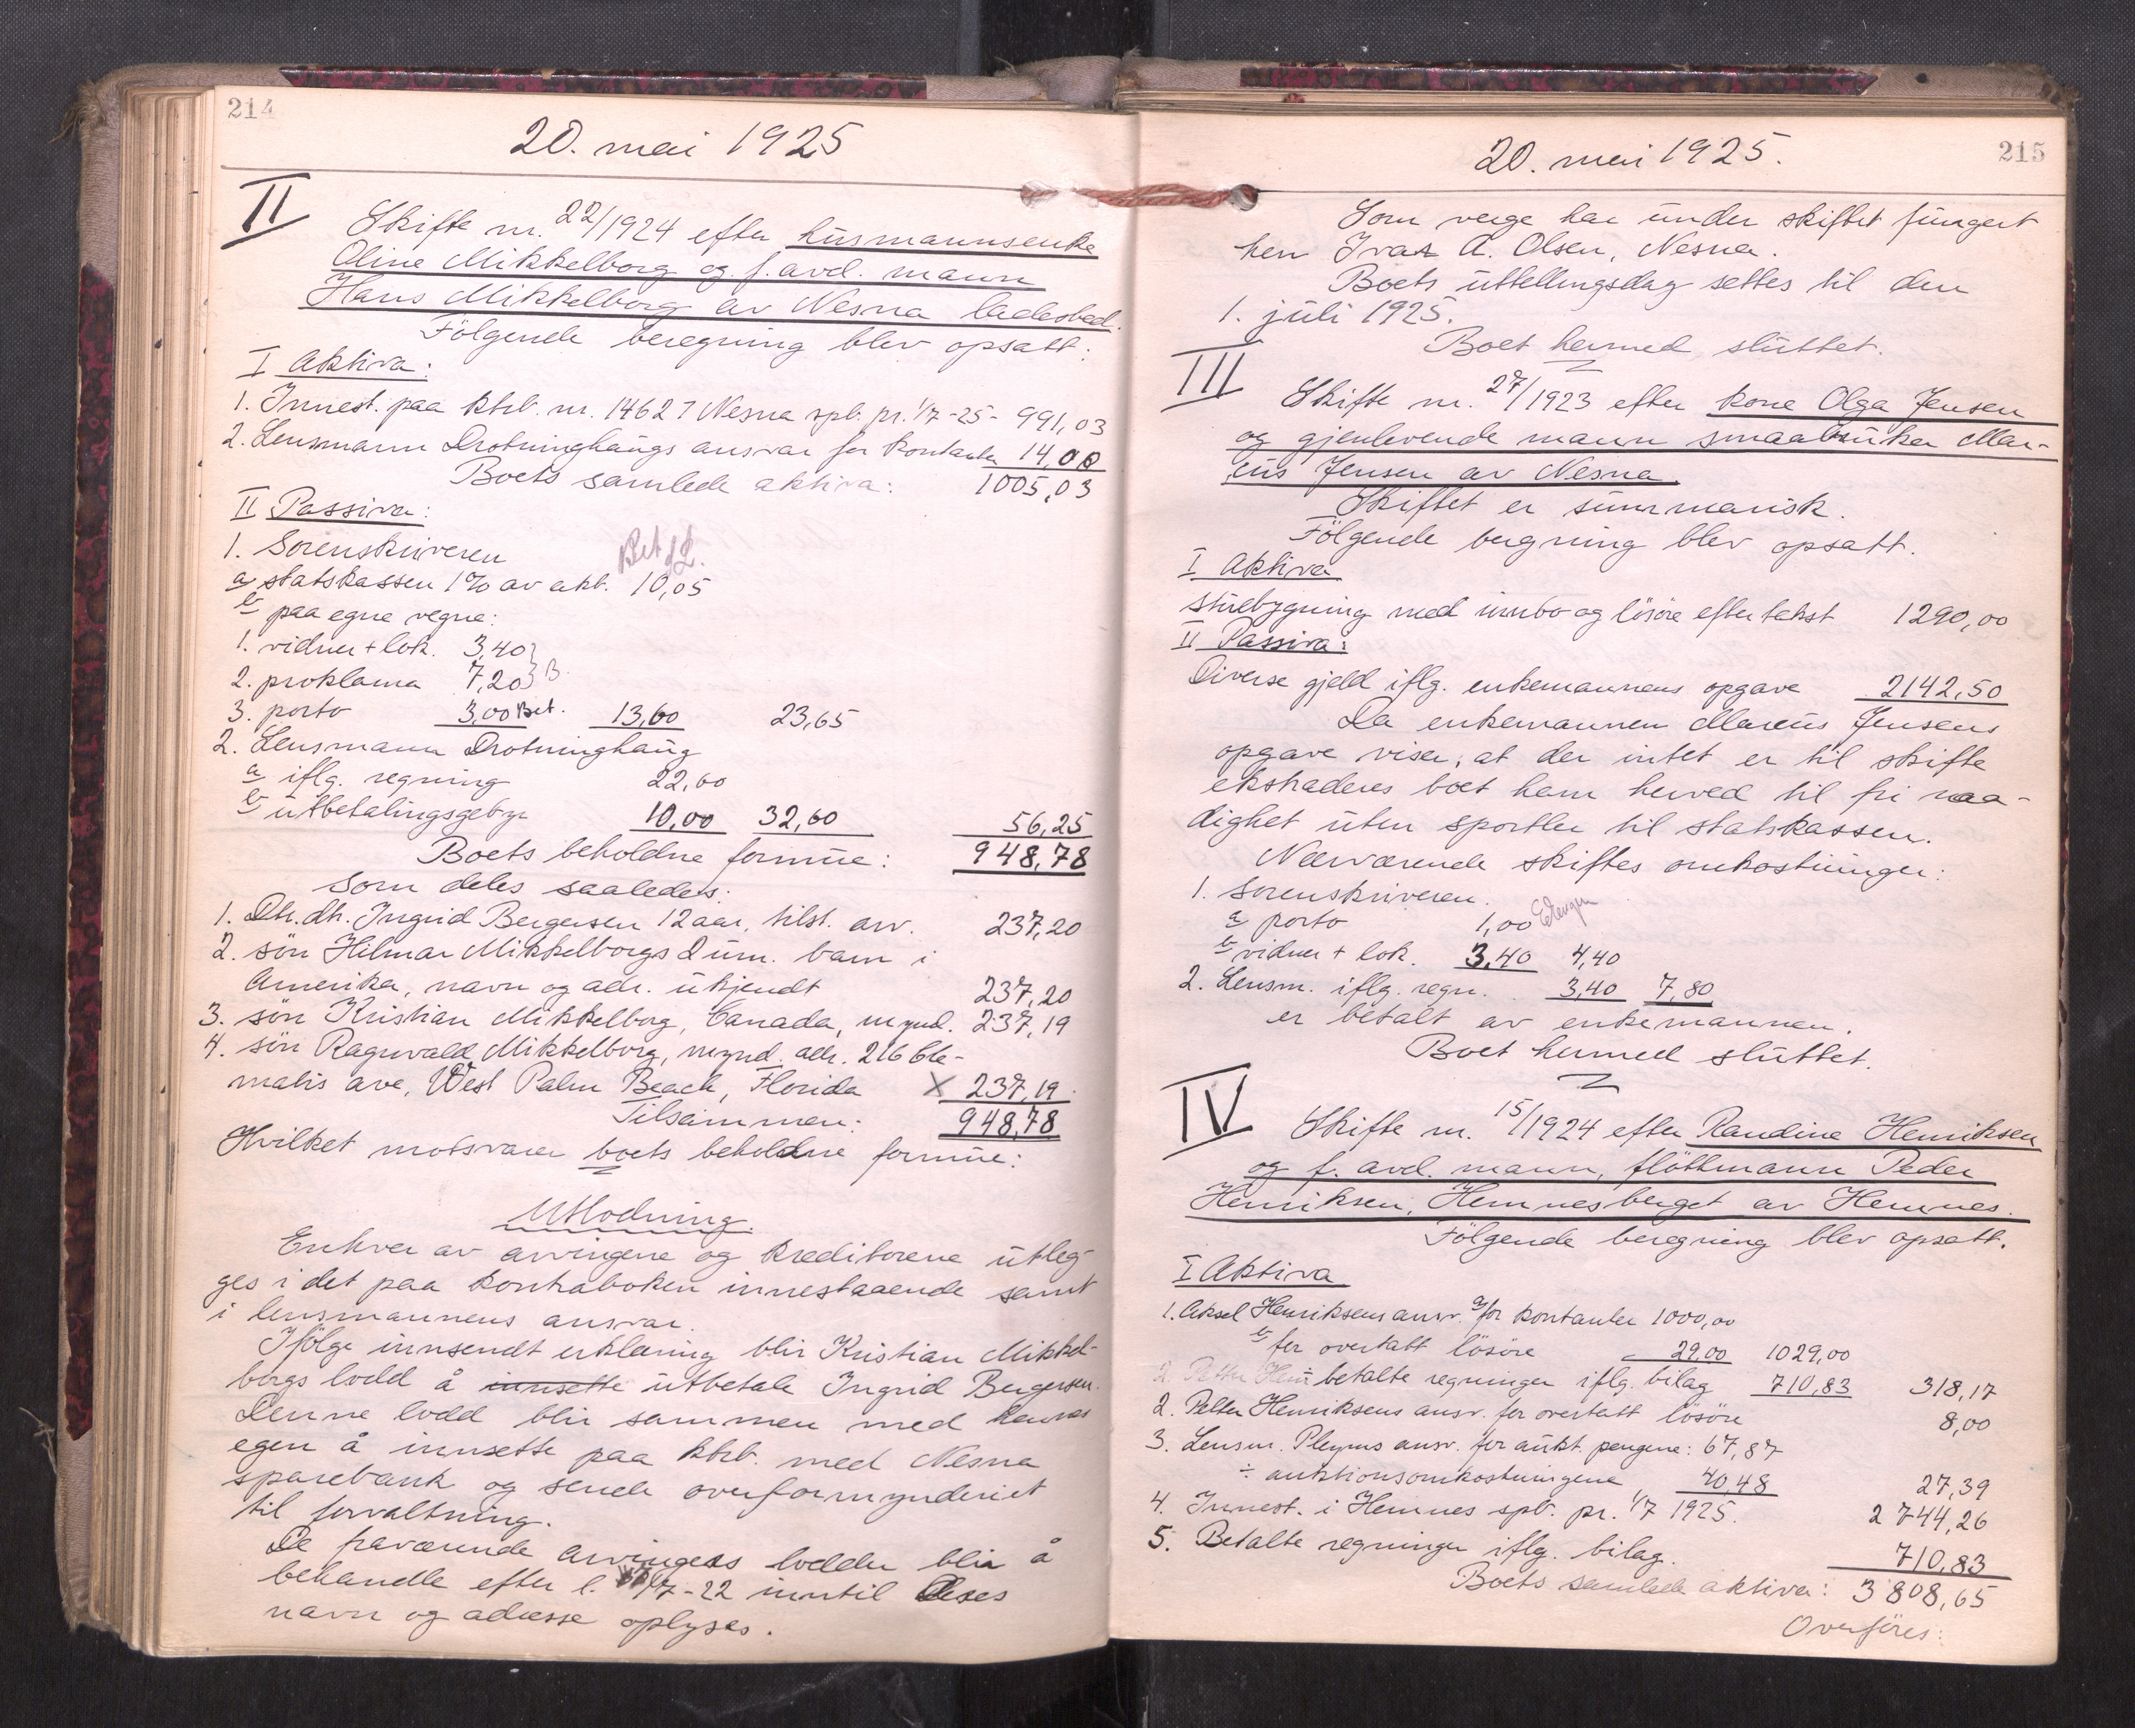 214
20. mai 1925
II
Skifte nr. 22/1924 efter husmannsenke
Oline Mikkelborg og f. avd. mann
Hans Mikkelborg av Nesna ladested.
Følgende beregning blev opsatt:
I Aktiva:
1. Innest. paa ktrb. nr. 14627 Nesna spb. pr. 1/7-25- 991,03
2. Lensmann Drotninghaugs ansvar for kontanter 14,00
Boets samlede aktiva: 1005,03
II Passiva:
1. Sorenskriveren
a statskassen 1% av akt. 10,05
b paa egne vegne:
1. vidner + lok. 3,40
2. proklama 7,20 } B.
3. porto 3,00 Bet. 13,60 23,65
2. Lensmann Drotninghaug
a iflg. regning 22,60
b utbetalingsgebyr 10,00 32,60 56,25
Boets beholdne formue: 948,78
Som deles saaledes:
1. Dtr. dtr. Ingrid Bergersen 12 aar, tilst. arv. 237,20
2. søn Hilmar Mikkelborgs 2 um. barn i
Amerika, navn og adr. ukjendt 237,20
3. søn Kristian Mikkelborg, Canada, mynd. 237,19
4. søn Ragnvald Mikkelborg, mynd. adr. 216 Cle-
matis ave, West Palm Beach, Florida X 237,19
Tilsammen: 948,78
Hvilket motsvarer boets beholdne formue:
Utlodning.
Enhver av arvingene og kreditorene utleg-
ges i det paa kontraboken innestaaende samt
i lensmannens ansvar.
Ifølge innsendt erklæring blir Kristian Mikkel-
borgs lodd å innsette utbetale Ingrid Bergersen.
Denne lodd blir sammen med hennes
egen å innsette paa ktrb. med Nesna
sparebank og sende overformynderiet
til forvaltning.
De fraværende arvingers lodder blir å
behandle efter l. /7-22 inntil deres
navn og adresse oplyses.
215
20. mai 1925.
Som verge har under skiftet fungert
herr Ivar A. Olsen, Nesna.
Boets utlellingsdag settes til den
1. juli 1925.
Boet hermed sluttet.
III
Skifte nr. 27/1923 efter kone Olga Jensen
og gjenlevende mann smaabruker Mar-
ius Jensen av Nesna.
Skiftet er summarisk.
Følgende bergning blev opsatt.
I Aktiva
stuebygning med innbo og løsøre efter takst 1290,00
II Passiva:
Diverse gjeld iflg. enkemannens opgave 2142,50
Da enkemannen Marius Jensens
opgave viser, at der intet er til skifte
ekstraderes boet ham herved til fri raa-
dighet uten sportler til statskassen.
Nærværende skiftes omkostninger:
1. Sorenskriveren.
a porto 1,00
b vidner + lok. 3,40 4,40
2. Lensm. iflg. regn. 3,40 7,80
er betalt av enkemannen.
Boet hermed sluttet.
IV
Skifte nr. 15/1924 efter Randine Henriksen
og f. avd. mann, fløttmann Peder
Henriksen, Hemnesberget av Hemnes.
Følgende beregning blev opsatt.
I Aktiva
1. Aksel Henriksens ansv. a for kontanter 1000,00
b for overtatt løsøre 29,00 1029,00
betalte regninger iflg. bilag 710,83 318,17
2. Petter Henriksens ansv. for overtatt løsøre 8,00
3. Lensm. Pleyms ansv. for aukt. pengene: 67,87
÷ auktionsomkostningene 40,48 27,39
4. Innest. i Hemnes spb. pr. 1/7 1925. 2744,26
5. Betalte regninger iflg. bilag. 710,83
Boets samlede aktiva: 3808,65
Overføres: